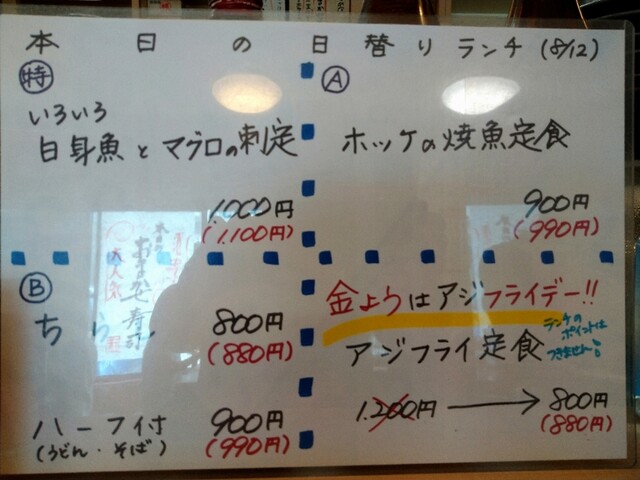 本日の日替りランチ(8/12)
特
いろいろ
白身魚とマグロの刺定
1,000円
(1,100円)
A
ホッケの焼魚定食
900円
(990円)
B
ちらし
800円
(880円)
ハーフ付
(うどん・そば)
900円
(990円)
金ようはアジフライデー!!
アジフライ定食
ランチの
ポイントは
つきません!
1.200円→800円
(880円)